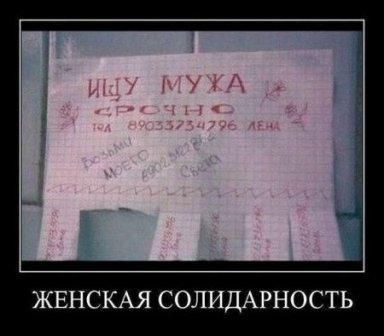 ИЩУ МУЖА
СРОЧНО
тел 89033734796 ЛЕНА
Возьми
МОЕГО
Света
ЖЕНСКАЯ СОЛИДАРНОСТЬ